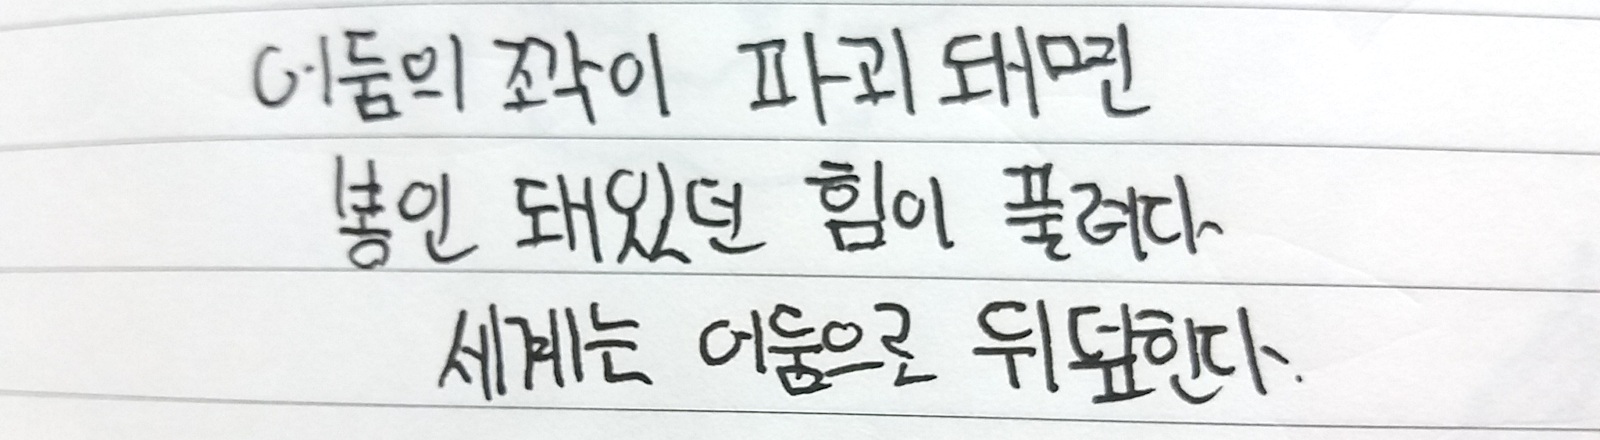 어둠의 조각이 파괴 돼면
봉인 돼있던 힘이 풀려다
세계는 어둠으로 뒤덮한다.